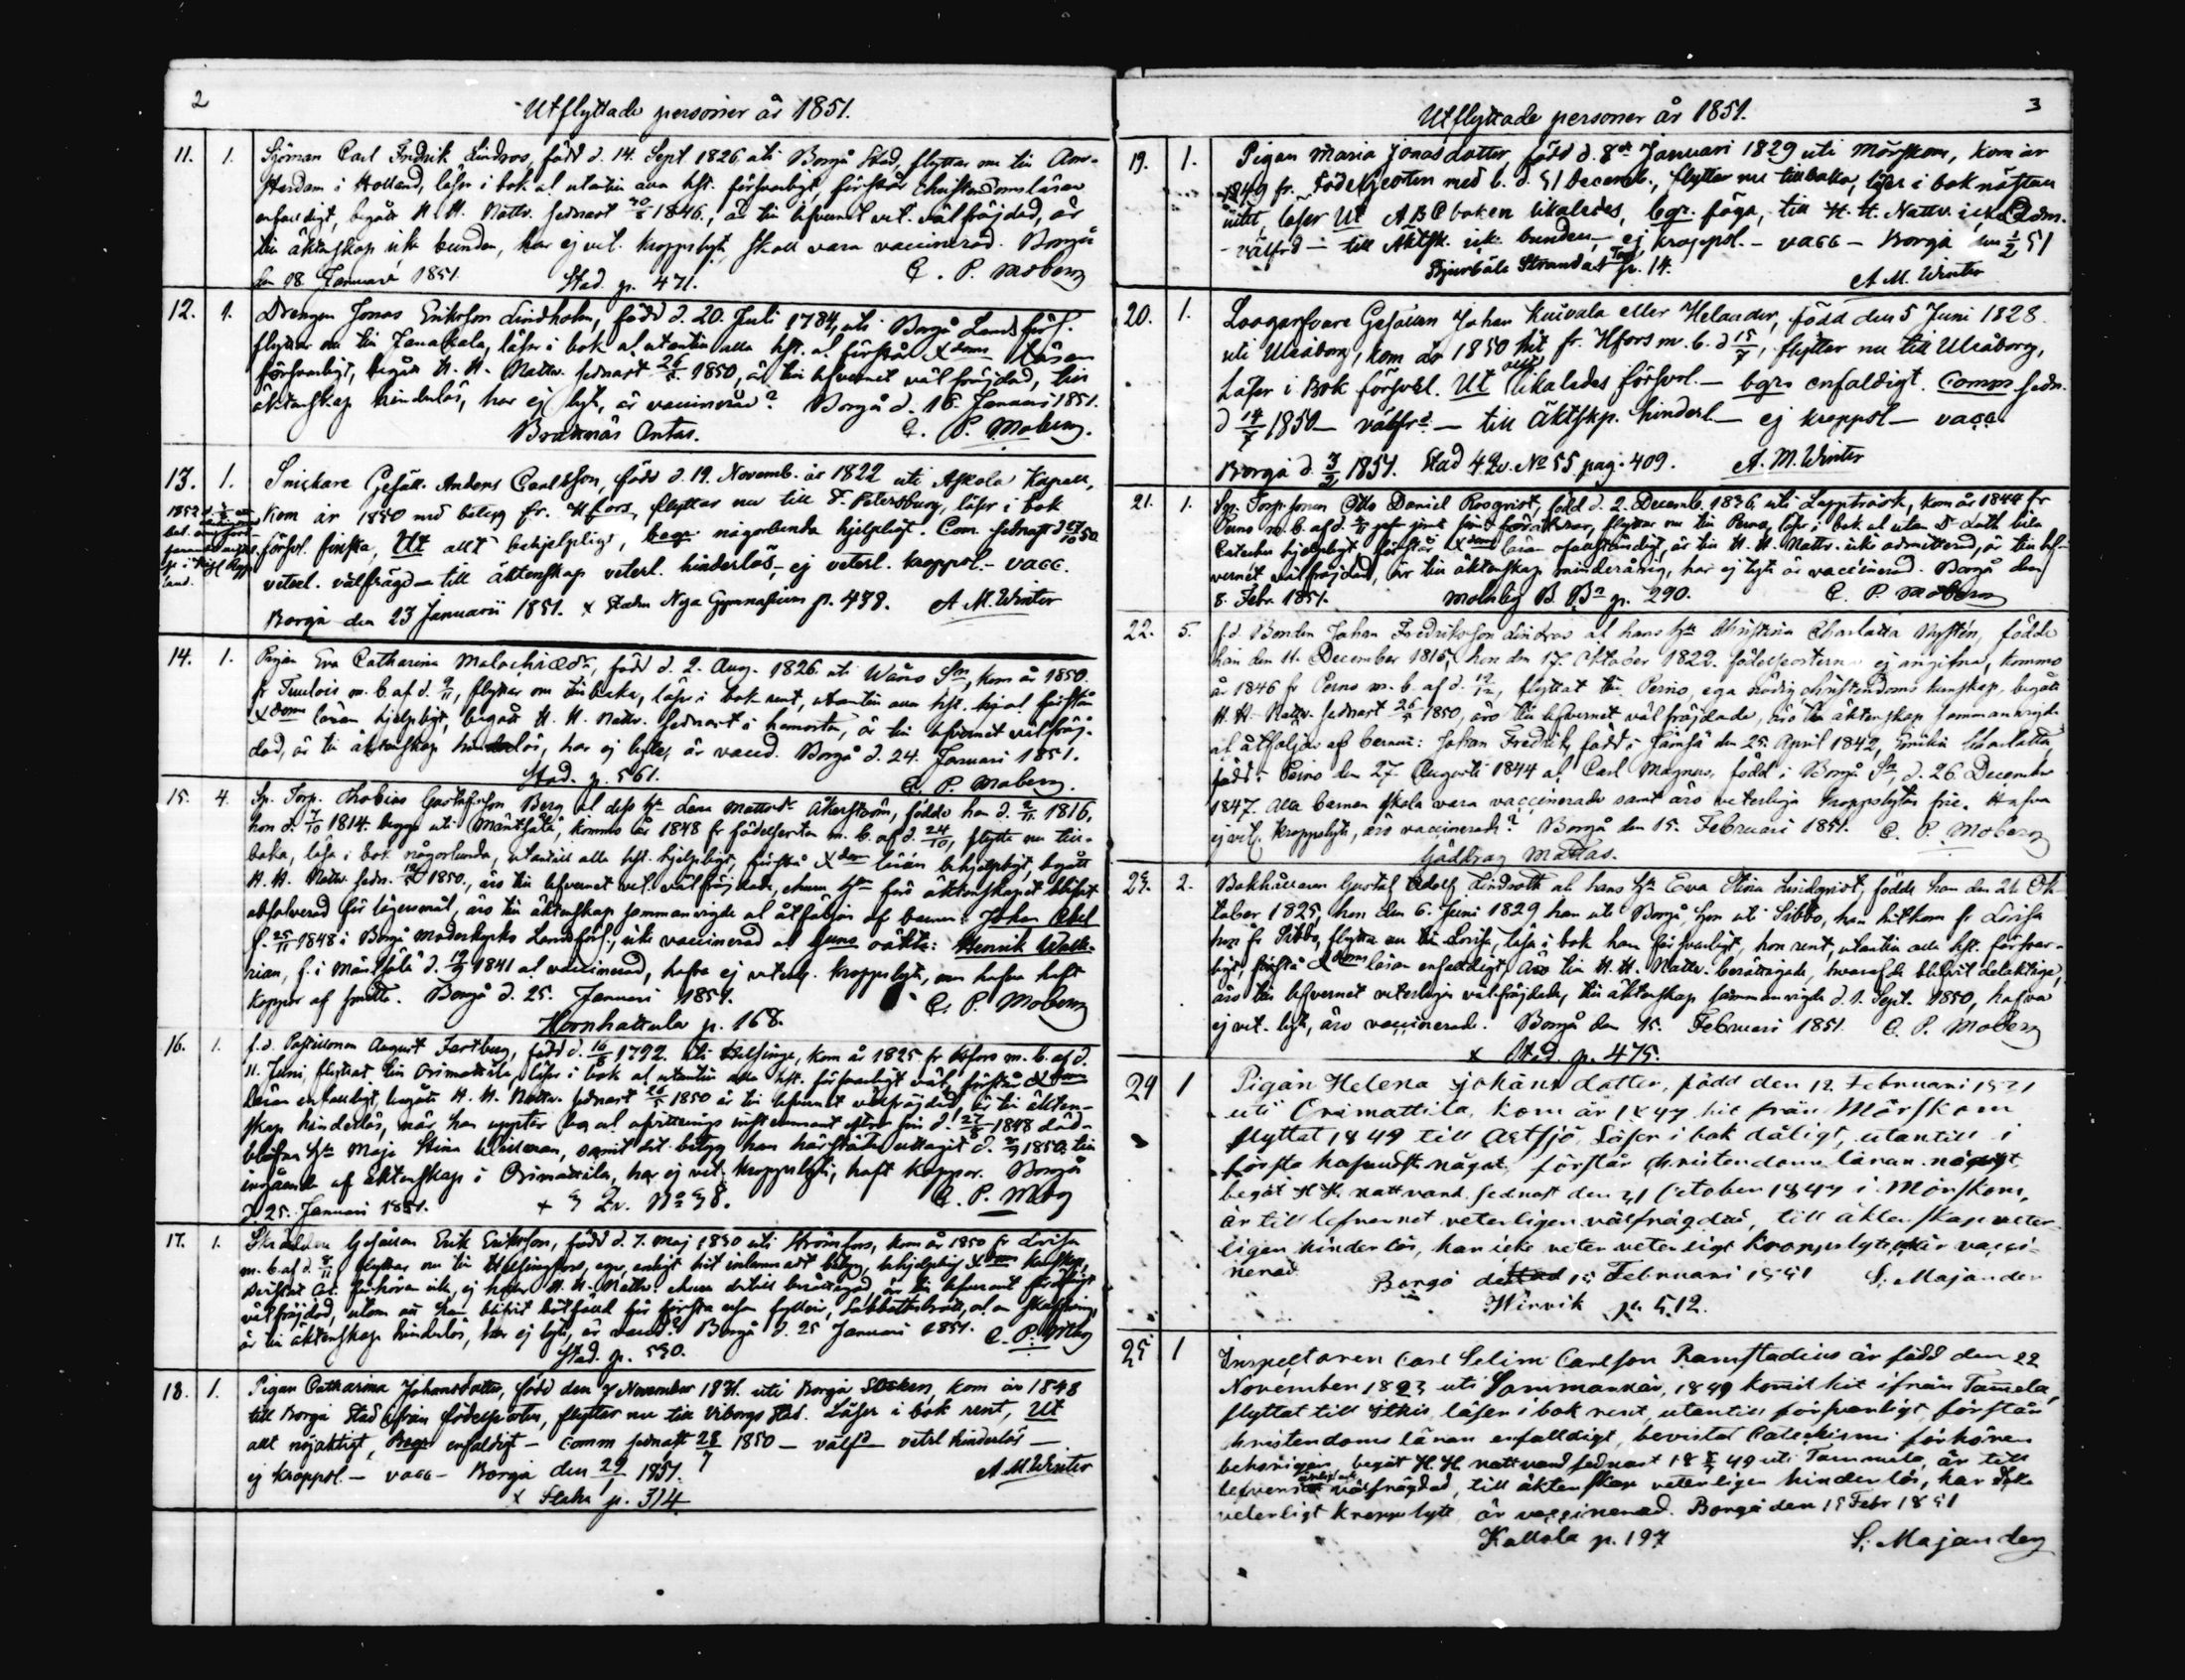 2
Utflyttade personer år 1851.
11. 1. Sjöman Carl Fredrik Lindroos, född d. 14. Sept 1826 uti Borgå Stad, flyttar nu till Am-
sterdam i Holland, läser i bok al utantill alla hst. försvarligt, förstår Christendomsläran
enfaldigt, begått H. H. Nattv. sednast 1846., är till lefvernet vet. välfrejdad, är
till äktenskap icke bunden, har ej vet. kroppslyte, skall vara vaccinerad. Borgå
den 18. Januari 1851. Stad. p. 471. C. P. Moberg
12. 1. Drengen Jonas Eriksson Lindholm, född d. 20. Juli 1784, uti Borgå Landsförs.
flyttar nu till Janakkala, läser i bok al utantill alla hst. al förstår Xdoms läran
försvarligt, begått H. H. Nattv. sednast 26/5 1850, är till lefvernet välfrejdad, till
äktenskap hinderlös, har ej lyte, är vaccinerad? Borgå d. 18. Januari 1851.
Braxnäs Antas. C. P. Moberg.
13. 1. Snickare Gesäll. Anders Carlsson, född d. 19. Novemb. år 1822 uti Askola Kapell,
kom år 1850 med betyg fr. Hfors, flyttar nu till S. Petersburg, läser i bok
försvl. finska, Ut allt behjelpligt, begr någorlunda hjelpligt. Com. sednast d 50
veterl. välfrägd – till äktenskap veterl. hinderlös, – ej veterl. kroppsl. – vacc.
Borgå den 23 Januarii 1851. x Staden Nya Gymnasium p. 438. A. M. Winter
14. 1. Pigan Eva Catharina född d. 2. Aug. 1826 uti Wånå Sn, kom år 1850
fr Tuulois m. b. af d. 9/11, flyttar nu tillbaka, läser i bok rent, utantill alla hst. hj. al förstår
Xdoms läran hjelpligt, begått H. H. Nattv. sednast i hemorten, är till lefvernet välfräj-
dad, är till äktenskap hinderlös, har ej lyte, är vaccd. Borgå d. 24. Januari 1851.
Stad. p. 561. C. P. Moberg.
15. 4. Sp. Torp. Thobias Gustafsson Berg al dess h. Lena Mattsdr. Åkerström, födde han d. 2/11 1816,
hon d. 7/10 1814. begge uti Mäntsälä, komne år 1848 fr födelseorten m. b. af d. 24/10, flytta nu till-
baka, läsa i bok någorlunda, utantill alla hst. hjelpligt, förstå Xdoms läran behjelpligt, begått
H. H. Nattv. sedn. 1850., äro till lefvernet vet. välfräjdade, ehuru före äktenskapet blifvit
absolverad för lägersmål, äro till äktenskap sammanvigde al åtföljas af barnen: Johan Abel
f. 25/11 1848 i Borgå Moderkyrko Landsförs., icke vaccinerad al hans oäkta: Henrik Walle-
rian, f. i Mäntsälä d. 19/9 1841 al vaccinerad, hafva ej veterl. kroppslyte, men hafva haft
koppor af smitta. Borgå d. 25. Januari 1851. C. P. Moberg
Hornhattula p. 168.
16. 1. f. d. Postillonen August född d. 16/8 1792. uti Helsinge, kom år 1825 fr Hfors m. b. af d.
11. Juni, flyttat till Orimattila, läser i bok al utantill alla hst. försvarligt väl, förstår Xdoms
läran enfaldigt, begått H. H. Nattv. sednast 26/5 1850 är till lefvernet välfräjdad, är till äkten-
skap hinderlös, när han uppter afvittrings instrument efter sin d. 1848 död-
blefna h. Maja Stina samt det betyg han härstädes uttagit d. 1850, till
ingående af äktenskap i Orimattila, har ej vet. kroppslyte, haft koppor. Borgå
d. 25. Januari 1851. + 3 Qv. No 38. C. P. Mbg
17. 1. Skräddare Gesällen Erik Eriksson, född d. 7. Maj 1830 uti Strömfors, kom år 1850 fr Lovisa
m. b. af d. 8/11 flyttar nu till Helsingfors, eger, enligt hit inlemnadt betyg, behjelplig Xdoms kunskap,
förhören icke, ej heller H. H. Nattv. ehuru dertill berättigad är till lefvernet
välfräjdad, utom att han blifvit bötfälld för första resan fylleri, Sabbathsbrott, al
är till äktenskap hinderlös, har ej lyte, är vaccd? Borgå d. 25 Januari 1851. C. P. Mbg
Stad. p. 530.
18. 1. Pigan Catharina Johansdotter, född den 7 November 1831. uti Borgå Socken, kom år 1848
till Borgå Stad ifrån födelseorten, flyttar nu till Viborgs Stad. Läser i bok rent, Ut
allt nöjaktigt, Begr enfaldigt – Comm sednast 28/7 1850 – välfd – vetrl hinderlös –
ej kroppsl. – vacc – Borgå den 29/1 1851. A M Winter
x Staden p. 314
3
Utflyttade personer år 1851.
19. 1. Pigan Maria Jonasdotter, född d. 8de Januari 1829 uti Mörskom, kom år
1849 fr. Födelseorten med b. d. 31 Decemb., flyttar nu tillbaka, läser i bok nästan
intet, läser Ut ABCboken likaledes, begr. föga, till H. H. Nattv. icke
välfrd – till Äktsk. icke bunden, – ej kroppsl. – vacc – Borgå den 1/2 51
Bjurböle Strandas Torp p. 14. A. M. Winter
20. 1. Logarfvare Gesällen Johan Kaivola eller Helander, född den 5 Juni 1828
uti Uleåborg, kom år 1850 hit fr. Hfors m. b. d 15/7, flyttar nu till Uleåborg,
Läser i Bok försvl. Ut allt likaledes försvl. – begr enfaldigt. Comm sedn.
d 14/7 1850 – välfrd – till Äktskp. hinderl. – ej kroppsl – vacc.
Borgå d. 3/2 1851. Stad 4 Qv. No 55 pag. 409. A. M. Winter
21. 1. Sp. Torp. sonen Otto Daniel Rosqvist, född d. 2. Decemb. 1836, uti Lappträsk, kom år 1844 fr
Perno m. b. af d. föräldrar, flyttar nu till Perno, läser i bok al utan Dr Luth. lilla
Cateches hjelpligt, förstår Xdoms läran ofullständigt, är till H. H. Nattv. icke admitterad, är till lef-
vernet välfräjdad, är till äktenskap minderårig, har ej lyte är vaccinerad. Borgå den
8. Febr. 1851. Molnby B. Bn p. 290. C. P. Moberg
22. 5. f. d. Bonden Johan Fredriksson Lindroos al hans h. Christina Charlotta Nystén, födde
han den 11. December 1816, hon den 17. Oktober 1822. födelseorterna ej angifna, komne
år 1846 fr Perno m. b. af d. 12/12, flyttat till Perno, ega nödig christendoms kunskap, begått
H. H. Nattv. sednast 26/5 1850, äro till lefvernet välfräjdade, äro till äktenskap sammanvigde
al åtföljas af barnen: Johan Fredrik, född i Jämsä den 25. April 1842, Emilia Charlotta,
född i Perno den 27. Augusti 1844 al Carl Magnus, född i Borgå Sn, d. 26. December
1847. Alla barnen skola vara vaccinerade samt äro veterliga kroppslyten frie. Hafva
ej vet. kroppslyte, äro vaccinerade? Borgå den 15. Februari 1851. C. P. Moberg
Gäddrag Mattas.
23. 2. Bokhållaren Gustaf Adolf al hans h. Eva Stina Lindqvist, födde han den 21 Ok-
tober 1825, hon den 6. Juni 1829 han uti Borgå, hon uti Sibbo, han hitkom fr Lovisa
hon fr Sibbo, flytta nu till Lovisa, läsa i bok han försvarligt, hon rent, utantill alla hst. försvar-
ligt, förstå Xdoms läran enfaldigt, äro till H. H. Nattv. berättigade, hvaraf de blifvit delaktige,
äro till lefvernet veterligen välfräjdade, till äktenskap sammanvigde d. 1. Sept. 1850, hafva
ej vet. lyte, äro vaccinerade. Borgå den 15. Februari 1851. C. P. Moberg
x Stad. p. 475.
24 1 Pigan Helena Johansdotter, född den 12 Februari 1821
uti Orimattila, kom år 1847 hit från Mörskom
flyttat 1849 till Artsjö, Läser i bok dåligt, utantill i
första hafvudst. något, förstår christendoms läran något,
begåt H H. nattvard sednast den 31 October 1847 i Mörskom,
är till lefvernet veterligen välfrägdad, till äktenskap veter-
ligen hinderlös, har icke veterligt kroppslyte, är vacci-
nerad. Borgå den 15 Februari 1851 S. Majander
Hirvik p. 512.
25 1 Inspectoren Carl Selim Carlson Ramstadius är född den 22
November 1823 uti Sammankär, 1849 komit hit ifrån Tammela,
flyttat till läser i bok rent, utantill försvarligt, förstår
christendoms läran enfalldigt, bevistat Catechismi förhören
behörigen, begåt H. H. nattvard sednast 18 49 uti Tammela, är till
lefvernet välfrägdad, till äktenskap veterligen hinderlös, har icke
veterligt kroppslyte, är vaccinerad. Borgå den 15 Febr 1851
Kallola p. 197 S. Majander